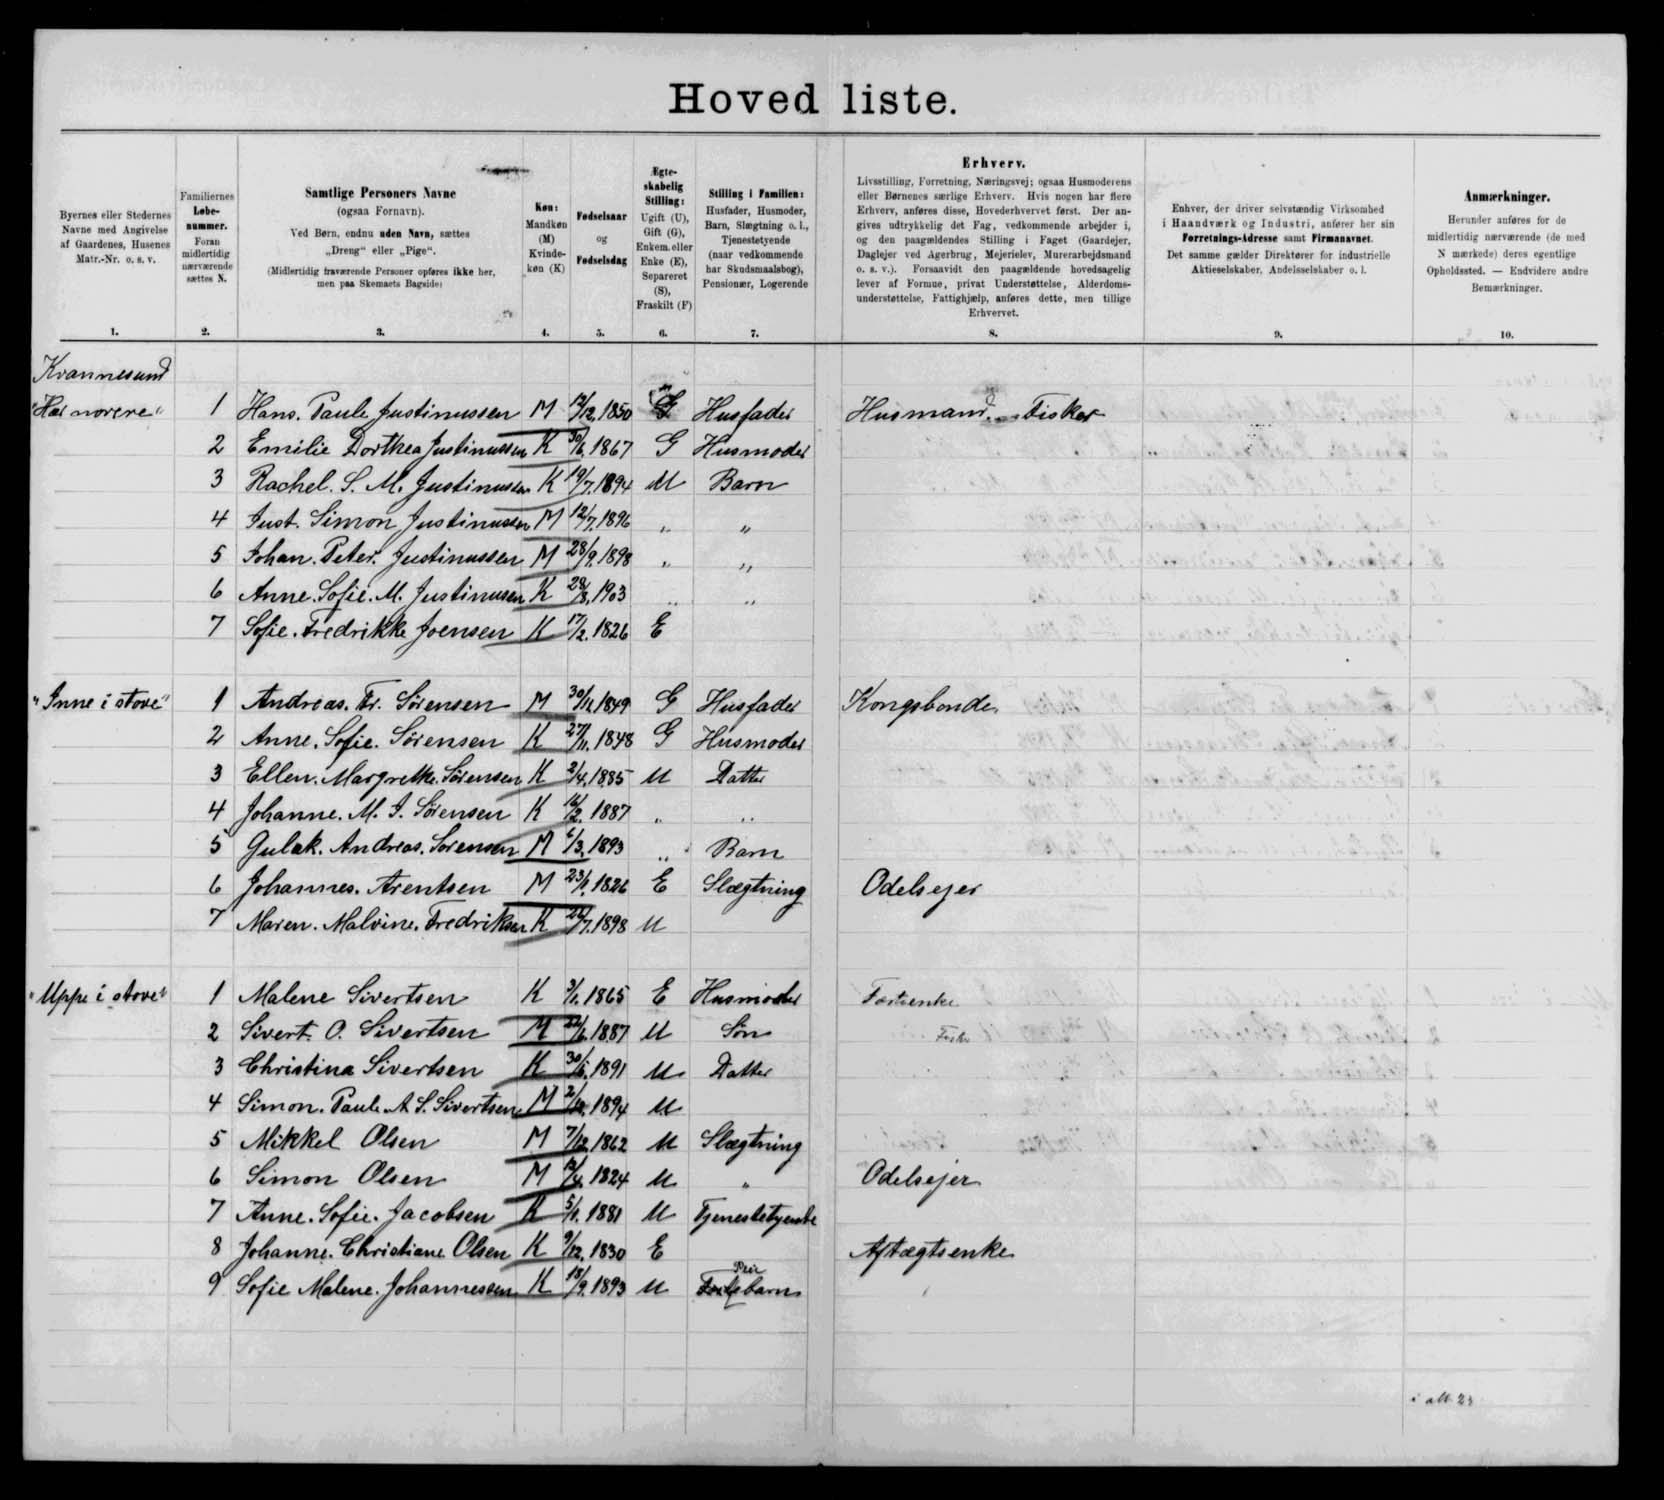 Hovedliste.
Byernes eller Stedernes Navne med Angivelse af Gaardenes, Husenes Matr.-Nr. o. s. v.
Familiernes Løbe-nummer. Foran midlertidig nærværende sættes N.
Samtlige Personers Navne
(ogsaa Fornavn).
Ved Børn, endnu uden Navn, sættes „Dreng“ eller „Pige“.
(Midlertidig fraværende Personer opføres ikke her, men paa Skemaets Bagside)
Køn: Mandkøn (M) Kvindekøn (K)
Fødselsaar og Fødselsdag
Ægteskabelig Stilling: Ugift (U), Gift (G), Enkem. eller Enke (E), Separeret (S), Fraskilt (F)
Stilling i Familien: Husfader, Husmoder, Barn, Slægtning o. l., Tjenestetyende (naar vedkommende har Skudsmaalsbog), Pensionær, Logerende
Erhverv.
Livsstilling, Forretning, Næringsvej; ogsaa Husmoderens
eller Børnenes særlige Erhverv. Hvis nogen har flere
Erhverv, anføres disse, Hovederhvervet først. Der an-
gives udtrykkelig det Fag, vedkommende arbejder i,
og den paagældendes Stilling i Faget (Gaardejer,
Daglejer ved Agerbrug, Mejerielev, Murerarbejdsmand
o. s. v.). Forsaavidt den paagældende hovedsagelig
lever af Formue, privat Understøttelse, Alderdoms-
understøttelse, Fattighjælp, anføres dette, men tillige
Erhvervet.
Enhver, der driver selvstændig Virksomhed
i Haandværk og Industri, anfører her sin
Forretnings-Adresse samt Firmanavnet.
Det samme gælder Direktører for industrielle
Aktieselskaber, Andelsselskaber o. l.
Anmærkninger.
Herunder anføres for de
midlertidig nærværende (de med
N mærkede) deres egentlige
Opholdssted. — Endvidere andre
Bemærkninger.
1. 2. 3. 4. 5. 6. 7. 8. 9. 10.
Kvannesund
"Har norere" 1 Hans. Paule Justinussen M 12/12. 1850 G Husfader Husmand. Fisker
2 Emilie Dorthea Justinussen K 30/6. 1867 G Husmoder
3 Rachel. S. M. Justinussen K 19/7. 1894 U Barn
4 Just. Simon Justinussen M 12/7. 1896 „ „
5 Johan. Peter. Justinussen M 28/9. 1898 „ „
6 Anne. Sofie. M. Justinusen K 28/8. 1903 „ „
7 Sofie. Fredrikke Joensen K 17/2. 1826 E
"Inne i stove" 1 Andreas. Fr. Sørensen M 30/11. 1849 G Husfader Kongsbonde
2 Anne. Sofie. Sørensen K 27/11. 1848 G Husmoder
3 Ellen. Margrethe. Sørensen K 2/4. 1885 U Datter
4 Johanne. M. J. Sørensen K 16/2. 1887 „ „
5 Gulak. Andreas. Sørensen M 6/3. 1893 „ Barn
6 Johannes. Arentsen M 23/1. 1826 E Slægtning Odelsejer
7 Maren. Malvine. Fredriksen K 26/7. 1898 U
"Uppe i stove" 1 Malene Sivertsen K 3/1. 1865 E Husmoder
2 Sivert. O. Sivertsen M 22/6. 1887 U Søn Fisker
3 Christina Sivertsen K 30/1. 1891 U Datter
4 Simon. Paule A S. Sivertsen M 2/10. 1894 U
5 Mikkel Olsen M 7/12. 1862 U Slægtning
6 Simon Olsen M 12/4. 1824 U „ Odelsejer
7 Anne. Sofie. Jacobsen K 5/1. 1881 U Tjenestetyende
8 Johanne. Christiane Olsen K 9/12. 1830 E Aftægtsenke
9 Sofie Malene. Johannessen K 18/9. 1893 U Pleie barn
i alt 23